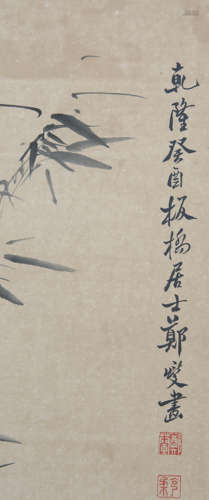 乾隆癸酉板橋居士鄭燮畫